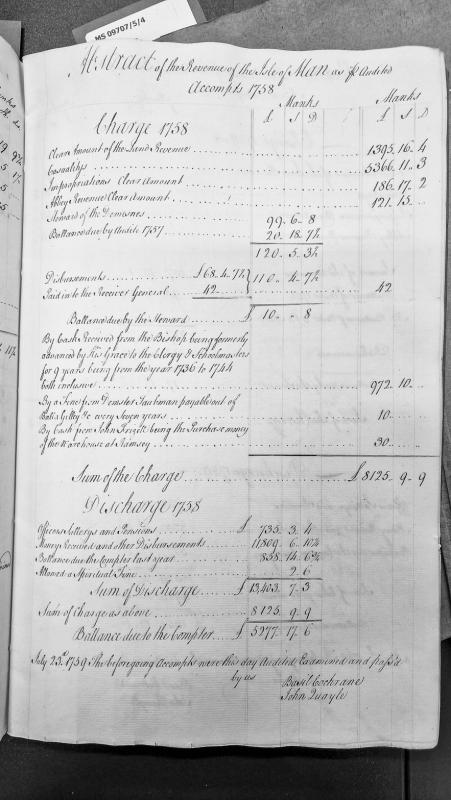 MS 09707/5/4
Abstract of the Revenue of the Isle of Man as p Audited
Accompts 1758
Manks Manks
£ S D £ S D
Charge 1758
Clear Amount of the Land Revenue 1395 .. 16 .. 4
Casualtys 5366 .. 11 .. 3
Impropriations Clear Amount 186 .. 17 .. 2
Abbey Revenue Clear Amount 121 .. 15 ..
Steward of the Demesnes 99 .. 6 .. 8
Ballance due by Audite 1757 20 .. 18 .. 7½
120 .. 5 .. 3½
Disbursements £68 .. 4 .. 7½ } 110 .. 4 .. 7½
Paid in to the Receiver General 42 42
Ballance due by the Steward £ 10 .. .. 8
By Cash Received from the Bishop being formerly
advanced by His Grace to the Clergy & Schoolmasters
for 9 years being from the year 1736 to 1744
both inclusive 972 .. 10 ..
By a Fine from Demster Taubman payable out of
every Seven years 10
By Cash from John Frizell being the Purchase money
of the Warehouse at Ramsey 30
Sum of the Charge £ 8125 .. 9 .. 9
Discharge 1758
Officers Sallerys and Pensions £ 735 .. 3 .. 4
Money Received and other Disbursements 11809 .. 6 .. 10¼
Ballance due the Compter last year 858 .. 14 .. 6¾
Allowed a Spiritual Fine 2 .. 6
Sum of Discharge £ 13,403 .. 7 .. 3
Sum of Charge as above 8125 .. 9 .. 9
Ballance due to the Compter £ 5277 .. 17 .. 6
July 23d 1759 The beforegoing Accompts were this day Audited Examined and pass'd
by us Basil Cochrane
John Quayle